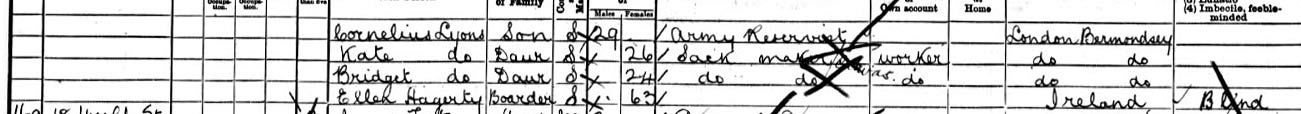 of Family
Males Females
Own account
Home
(4) Imbecile, feeble-minded
Cornelius Lyons Son S 29 Army Reservist London Bermondsey
Kate do Daur S 26 Sack maker worker do do
Bridget do Daur S 24 do do do do do
Ellen Hagerty Boarder S 63 Ireland Blind